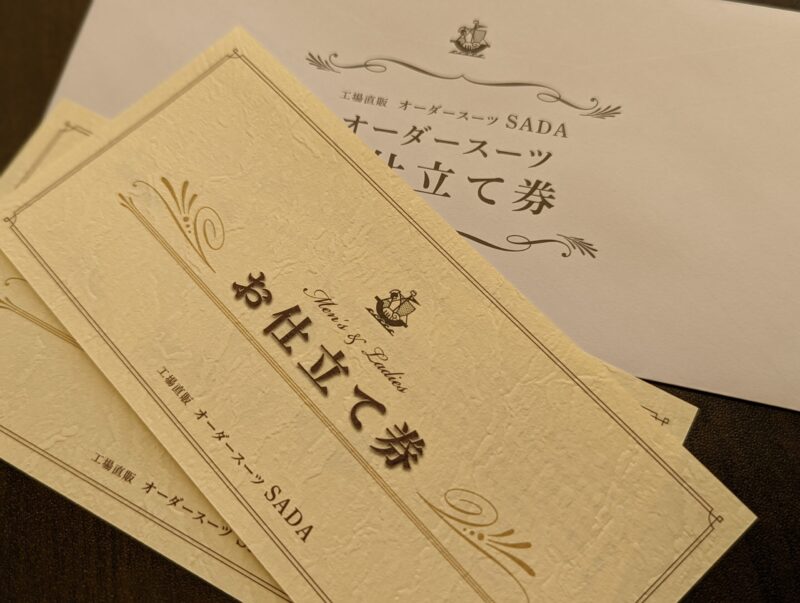 工場直販 オーダースーツ SADA
オーダースーツ
仕立て券
Men's & Ladies
お仕立て券
工場直販 オーダースーツ SADA
工場直販 オーダースーツ